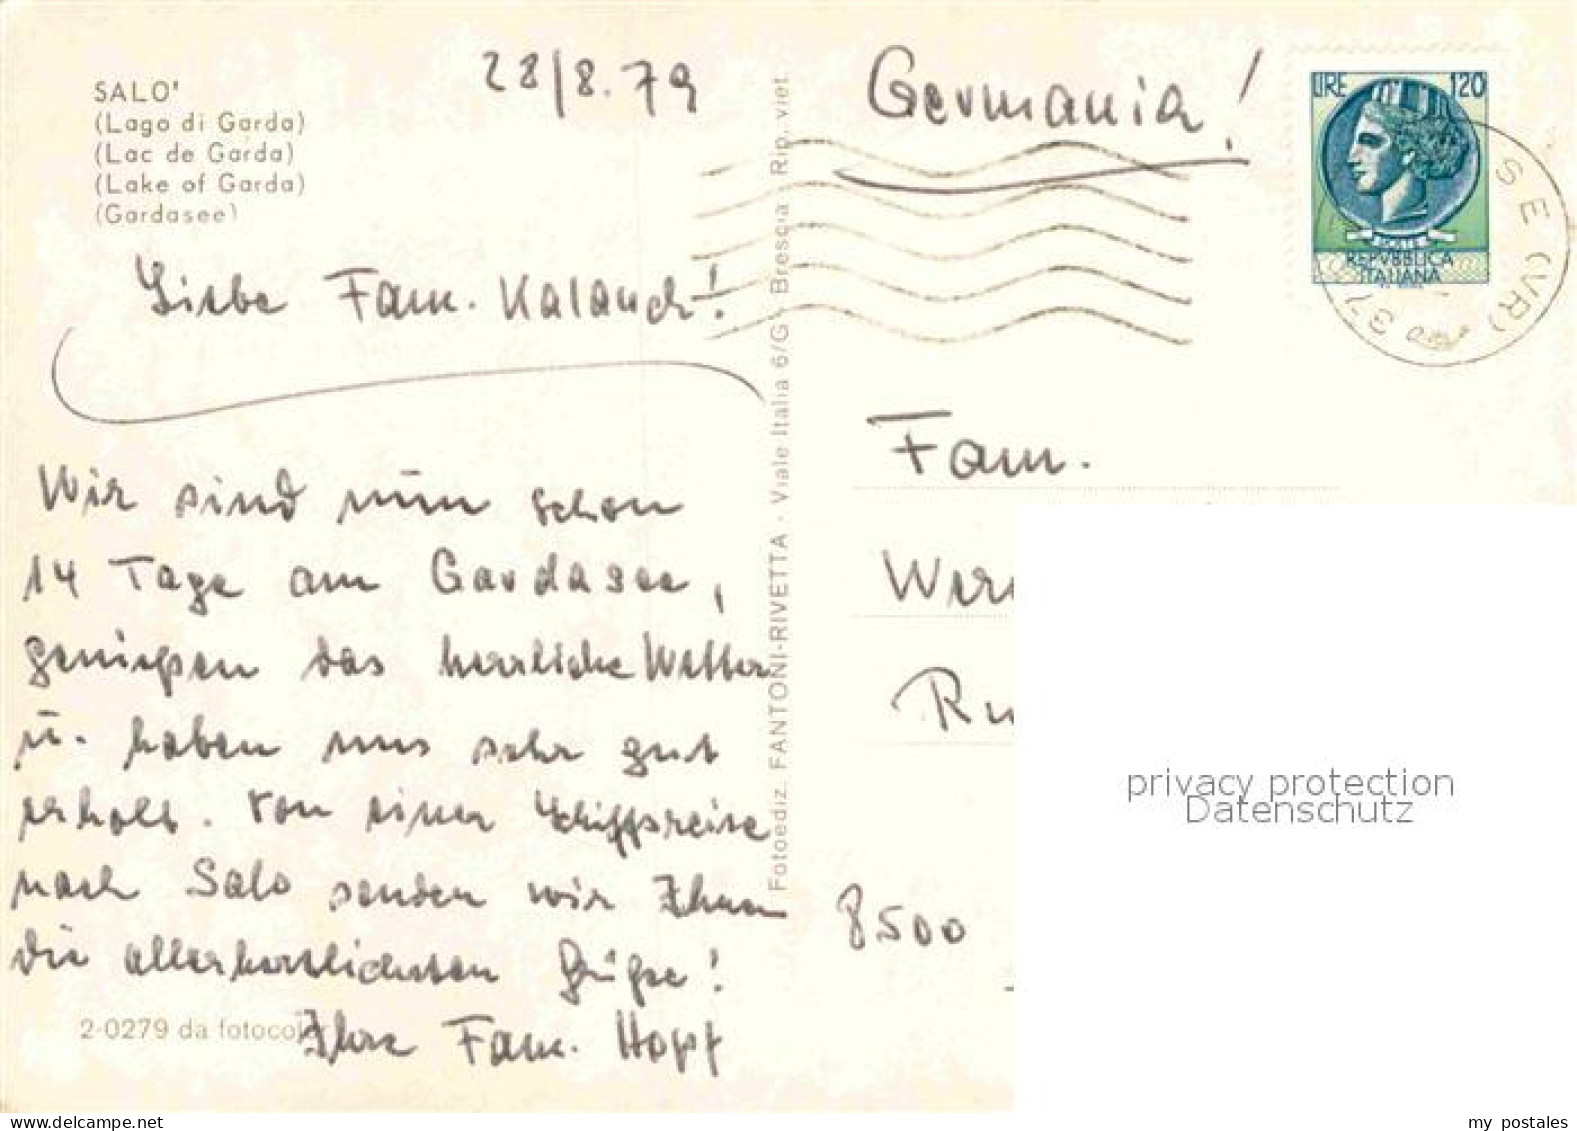 SALO'
(Lago di Garda)
(Lac de Garda)
(Lake of Garda)
(Gardasee)
28/8.79
Liebe Fam. Kalauch!
Wir sind nun schon
14 Tage am Gardasee,
genießen das herrliche Wetter
u. haben uns sehr gut
erholt. Von einer Schiffsreise
nach Salo senden wir Ihnen
die allerherzlichsten Grüße!
Ihre Fam. Hopf
2-0279 da fotocolor
Fotoediz. FANTONI-RIVETTA - Viale Italia 6/G - Brescia Rip. viet.
Germania!
LIRE 120
REPVBBLICA
ITALIANA
SE (VR)
37
Fam.
Wer
Ru
8500
privacy protection
Datenschutz
my postales